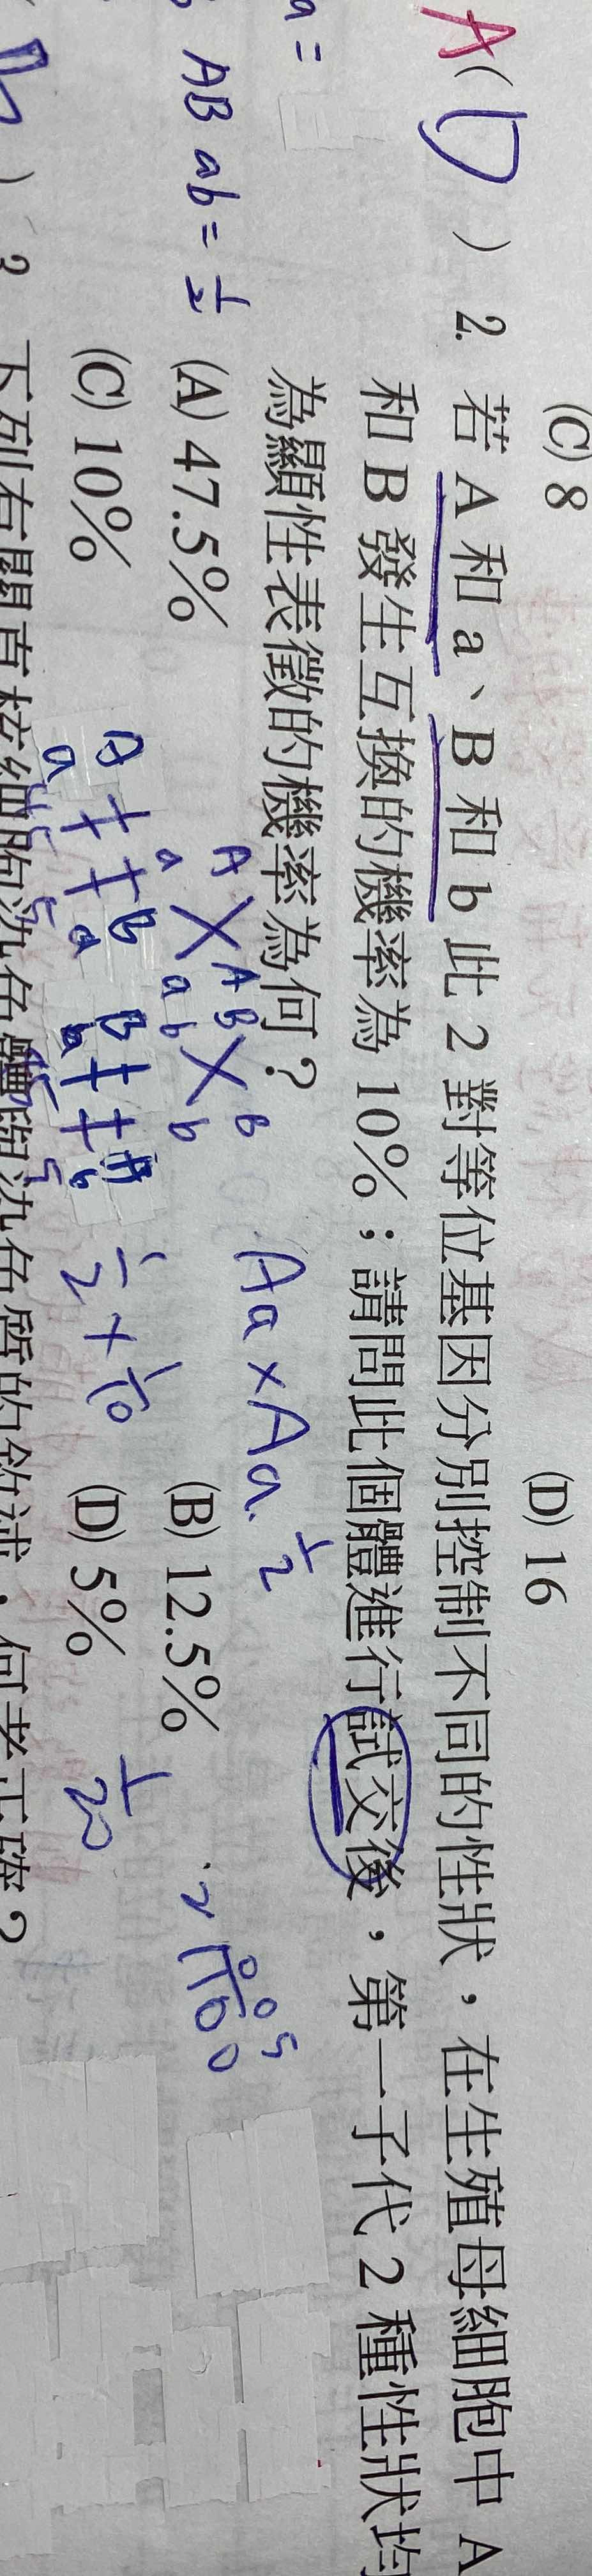 (C) 8 (D) 16
A( D ) 2. 若 A 和 a、B 和 b 此 2 對等位基因分別控制不同的性狀，在生殖母細胞中 A
和 B 發生互換的機率為 10%；請問此個體進行試交後，第一子代 2 種性狀均
為顯性表徵的機率為何？
Aa × Aa 1/2
AB ab = 1/2
(A) 47.5% (B) 12.5%
(C) 10% (D) 5%
1/2 × 1/10
1/20
下列有關真核細胞染色體與染色質的敘述，何者正確？